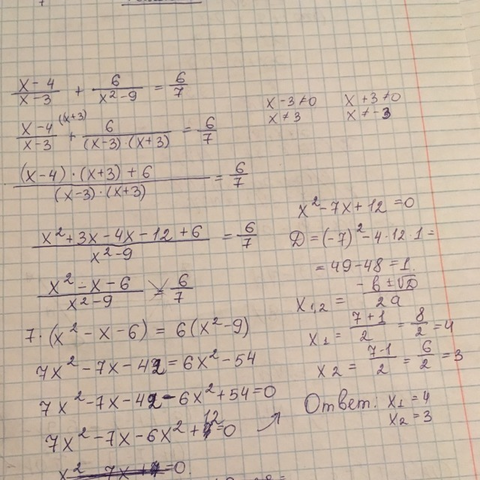 (x-4)/(x-3) + 6/(x²-9) = 6/7
x-3≠0 x+3≠0
x≠3 x≠-3
(x-4)/(x-3) (x+3) + 6/((x-3)(x+3)) = 6/7
((x-4)·(x+3)+6)/((x-3)·(x+3)) = 6/7
(x²+3x-4x-12+6)/(x²-9) = 6/7
(x²-x-6)/(x²-9) = 6/7
7·(x²-x-6) = 6(x²-9)
7x²-7x-42=6x²-54
7x²-7x-42-6x²+54=0
7x²-7x-6x²+12=0
x²-7x+12=0
D=(-7)²-4·12·1=
=49-48=1
x₁,₂ = (-b±√D)/(2a)
x₁ = (7+1)/2 = 8/2 = 4
x₂ = (7-1)/2 = 6/2 = 3
Ответ: x₁=4
x₂=3